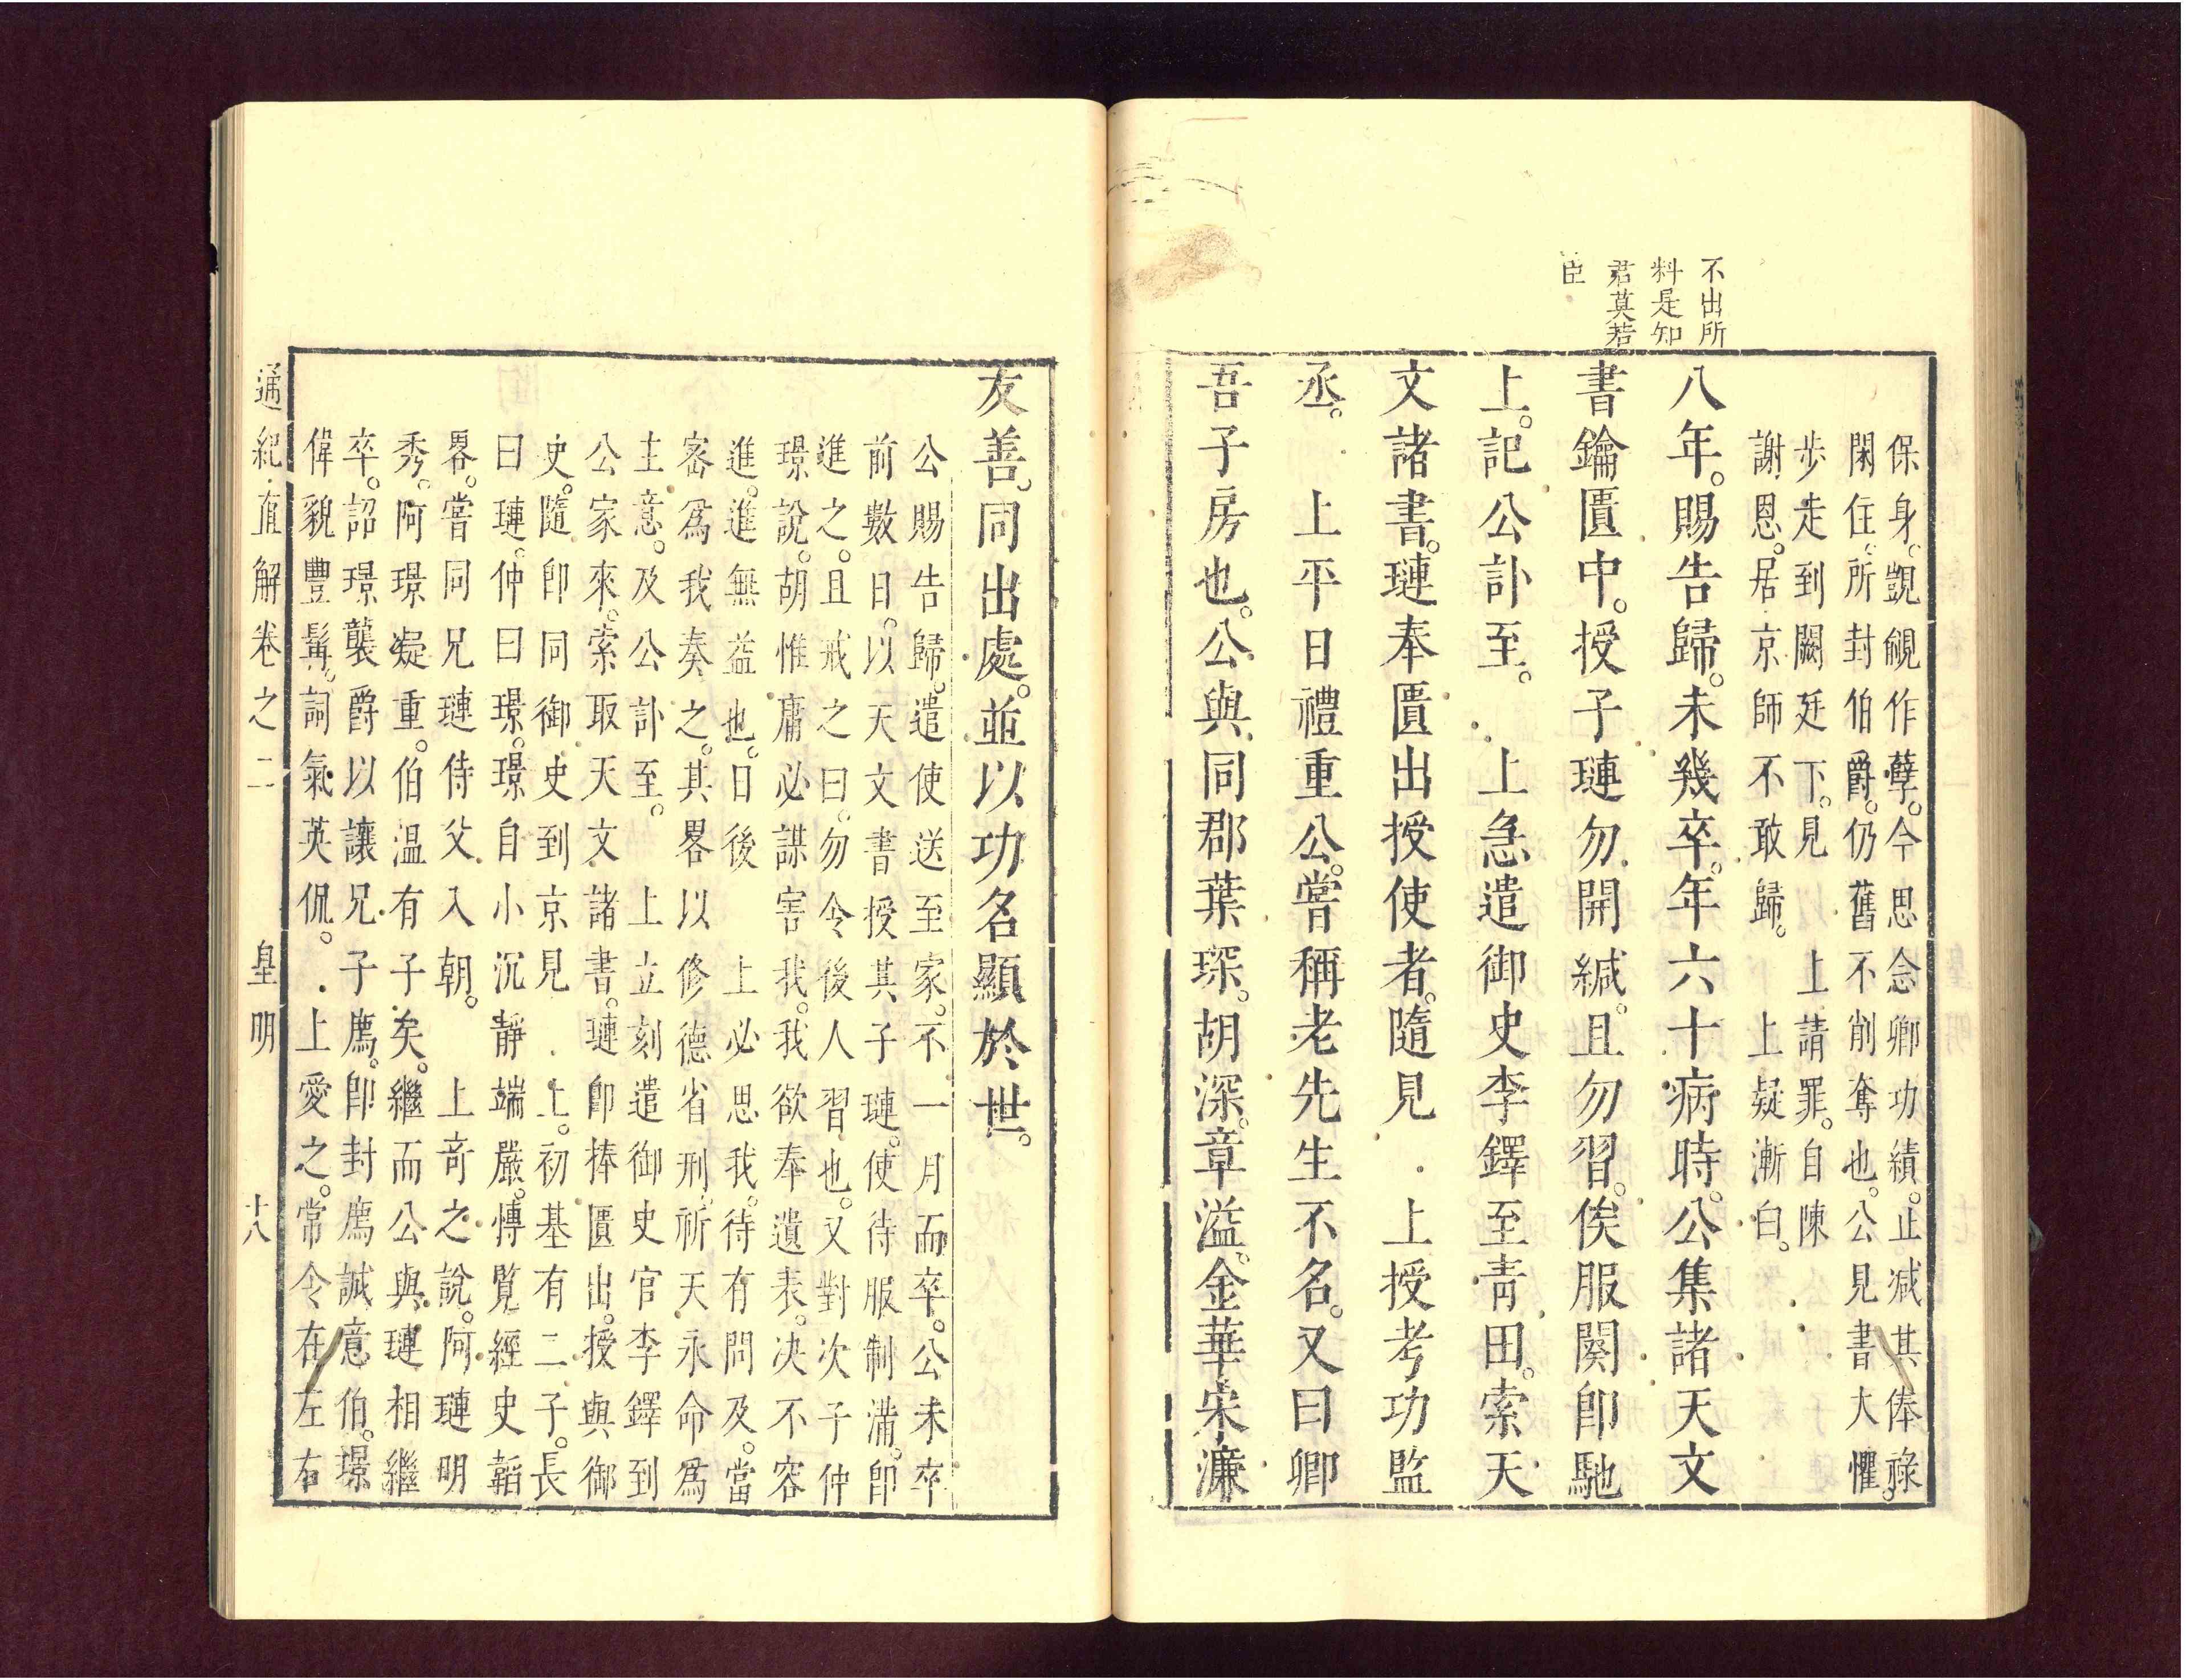 不出所
料是知
君莫若
臣
保身。覬覦作孽。今思念卿功績。止減其俸祿。
閑住。所封伯爵。仍舊不削奪也。公見書大懼。
步走到闕廷下。見　上請罪。自陳
謝恩。居京師不敢歸。　上疑漸白。
八年。賜告歸。未幾卒。年六十病時。公集諸天文
書鑰匱中。授子璉勿開緘。且勿習。俟服闋卽馳
上。記公訃至。　上急遣御史李鐸至青田。索天
文諸書。璉奉匱出授使者。隨見　上授考功監
丞。　上平日禮重公。嘗稱老先生不名。又曰卿
吾子房也。公與同郡葉琛。胡深。章溢。金華宋濂
友善。同出處。並以功名顯於世。
公賜告歸。遣使送至家。不一月而卒。公未卒
前數日。以天文書授其子璉。使待服制滿。卽
進之。且戒之曰。勿令後人習也。又對次子仲
璟說。胡惟庸必謀害我。我欲奉遺表。决不容
進。進無益也。日後　上必思我。待有問及。當
密爲我奏之。其畧以修德省刑。祈天永命爲
主意。及公訃至。　上立刻遣御史官李鐸到
公家來。索取天文諸書。璉卽捧匱出。授與御
史。隨卽同御史到京見　上。初基有二子。長
曰璉。仲曰璟。璟自小沉靜端嚴。愽覧經史韜
畧。嘗同兄璉侍父入朝。　上奇之。說。阿璉明
秀。阿璟凝重。伯温有子矣。繼而公與璉相繼
卒。詔璟襲爵以讓兄子廌。卽封廌誠意伯。璟
偉貌豐髯。詞氣英侃。　上愛之。常令在左右
通紀直解卷之二　皇明　十八